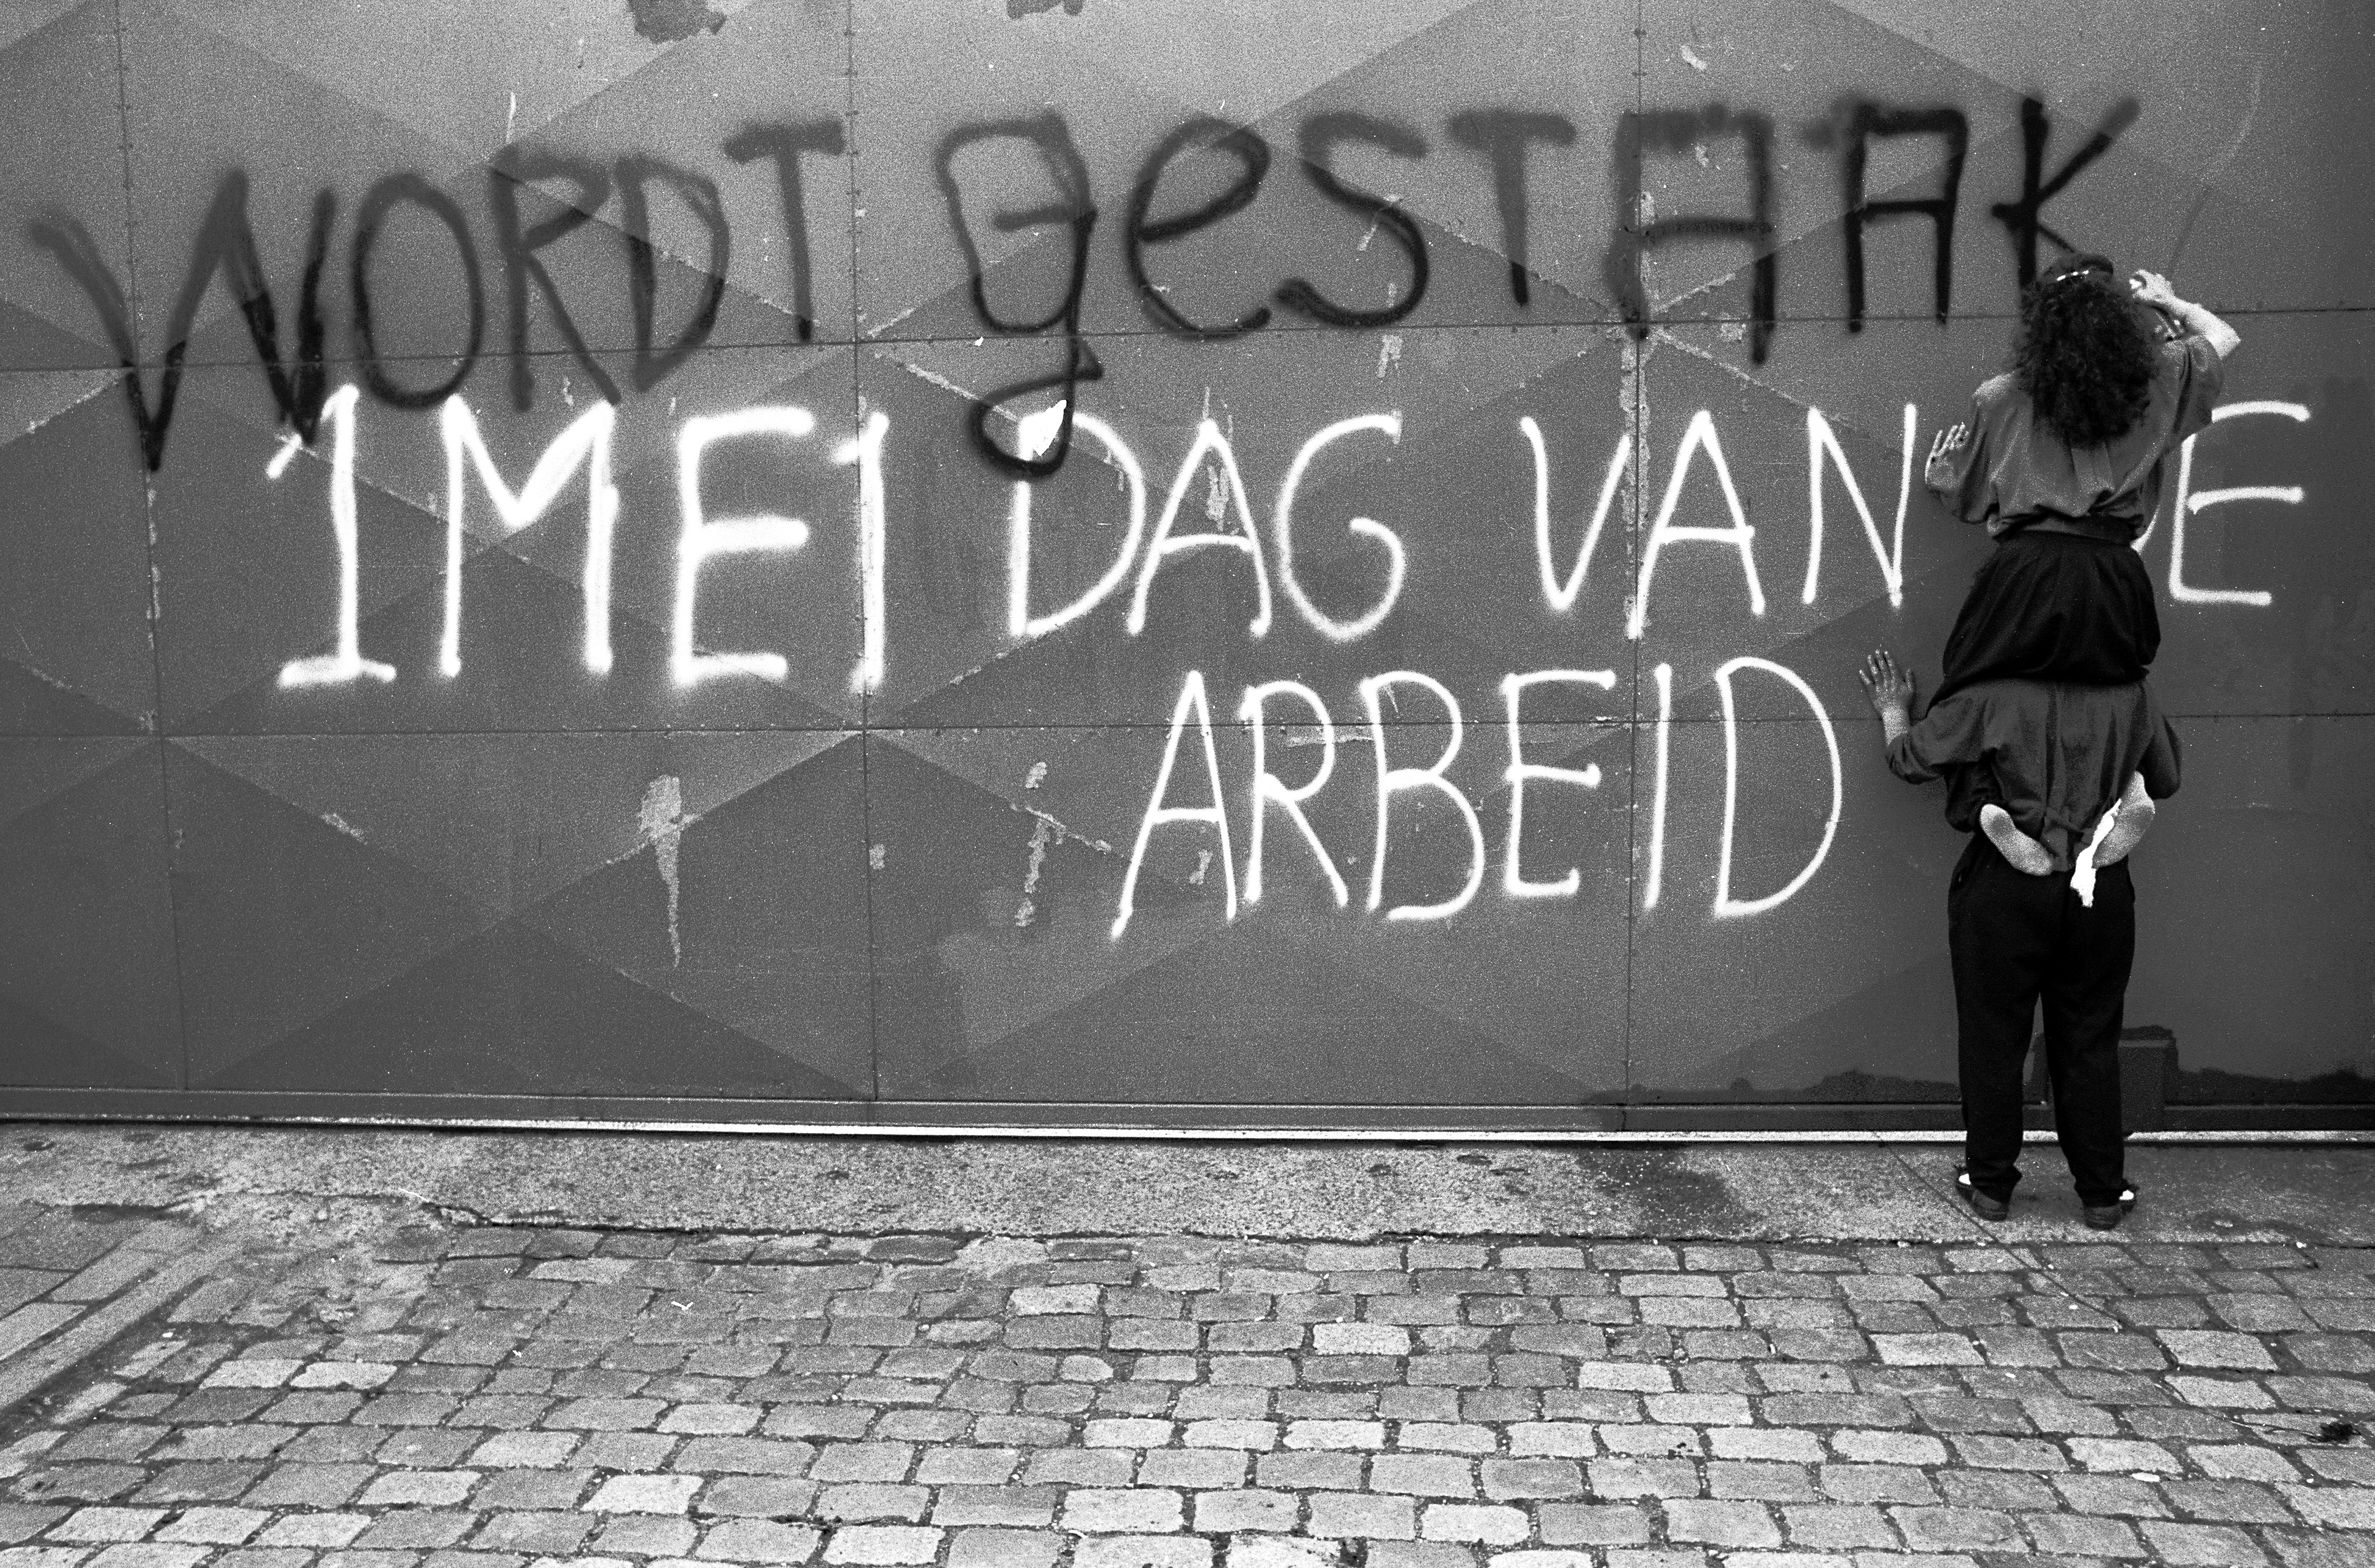 WORDT gESTAAK
1 MEI DAG VAN DE
ARBEID